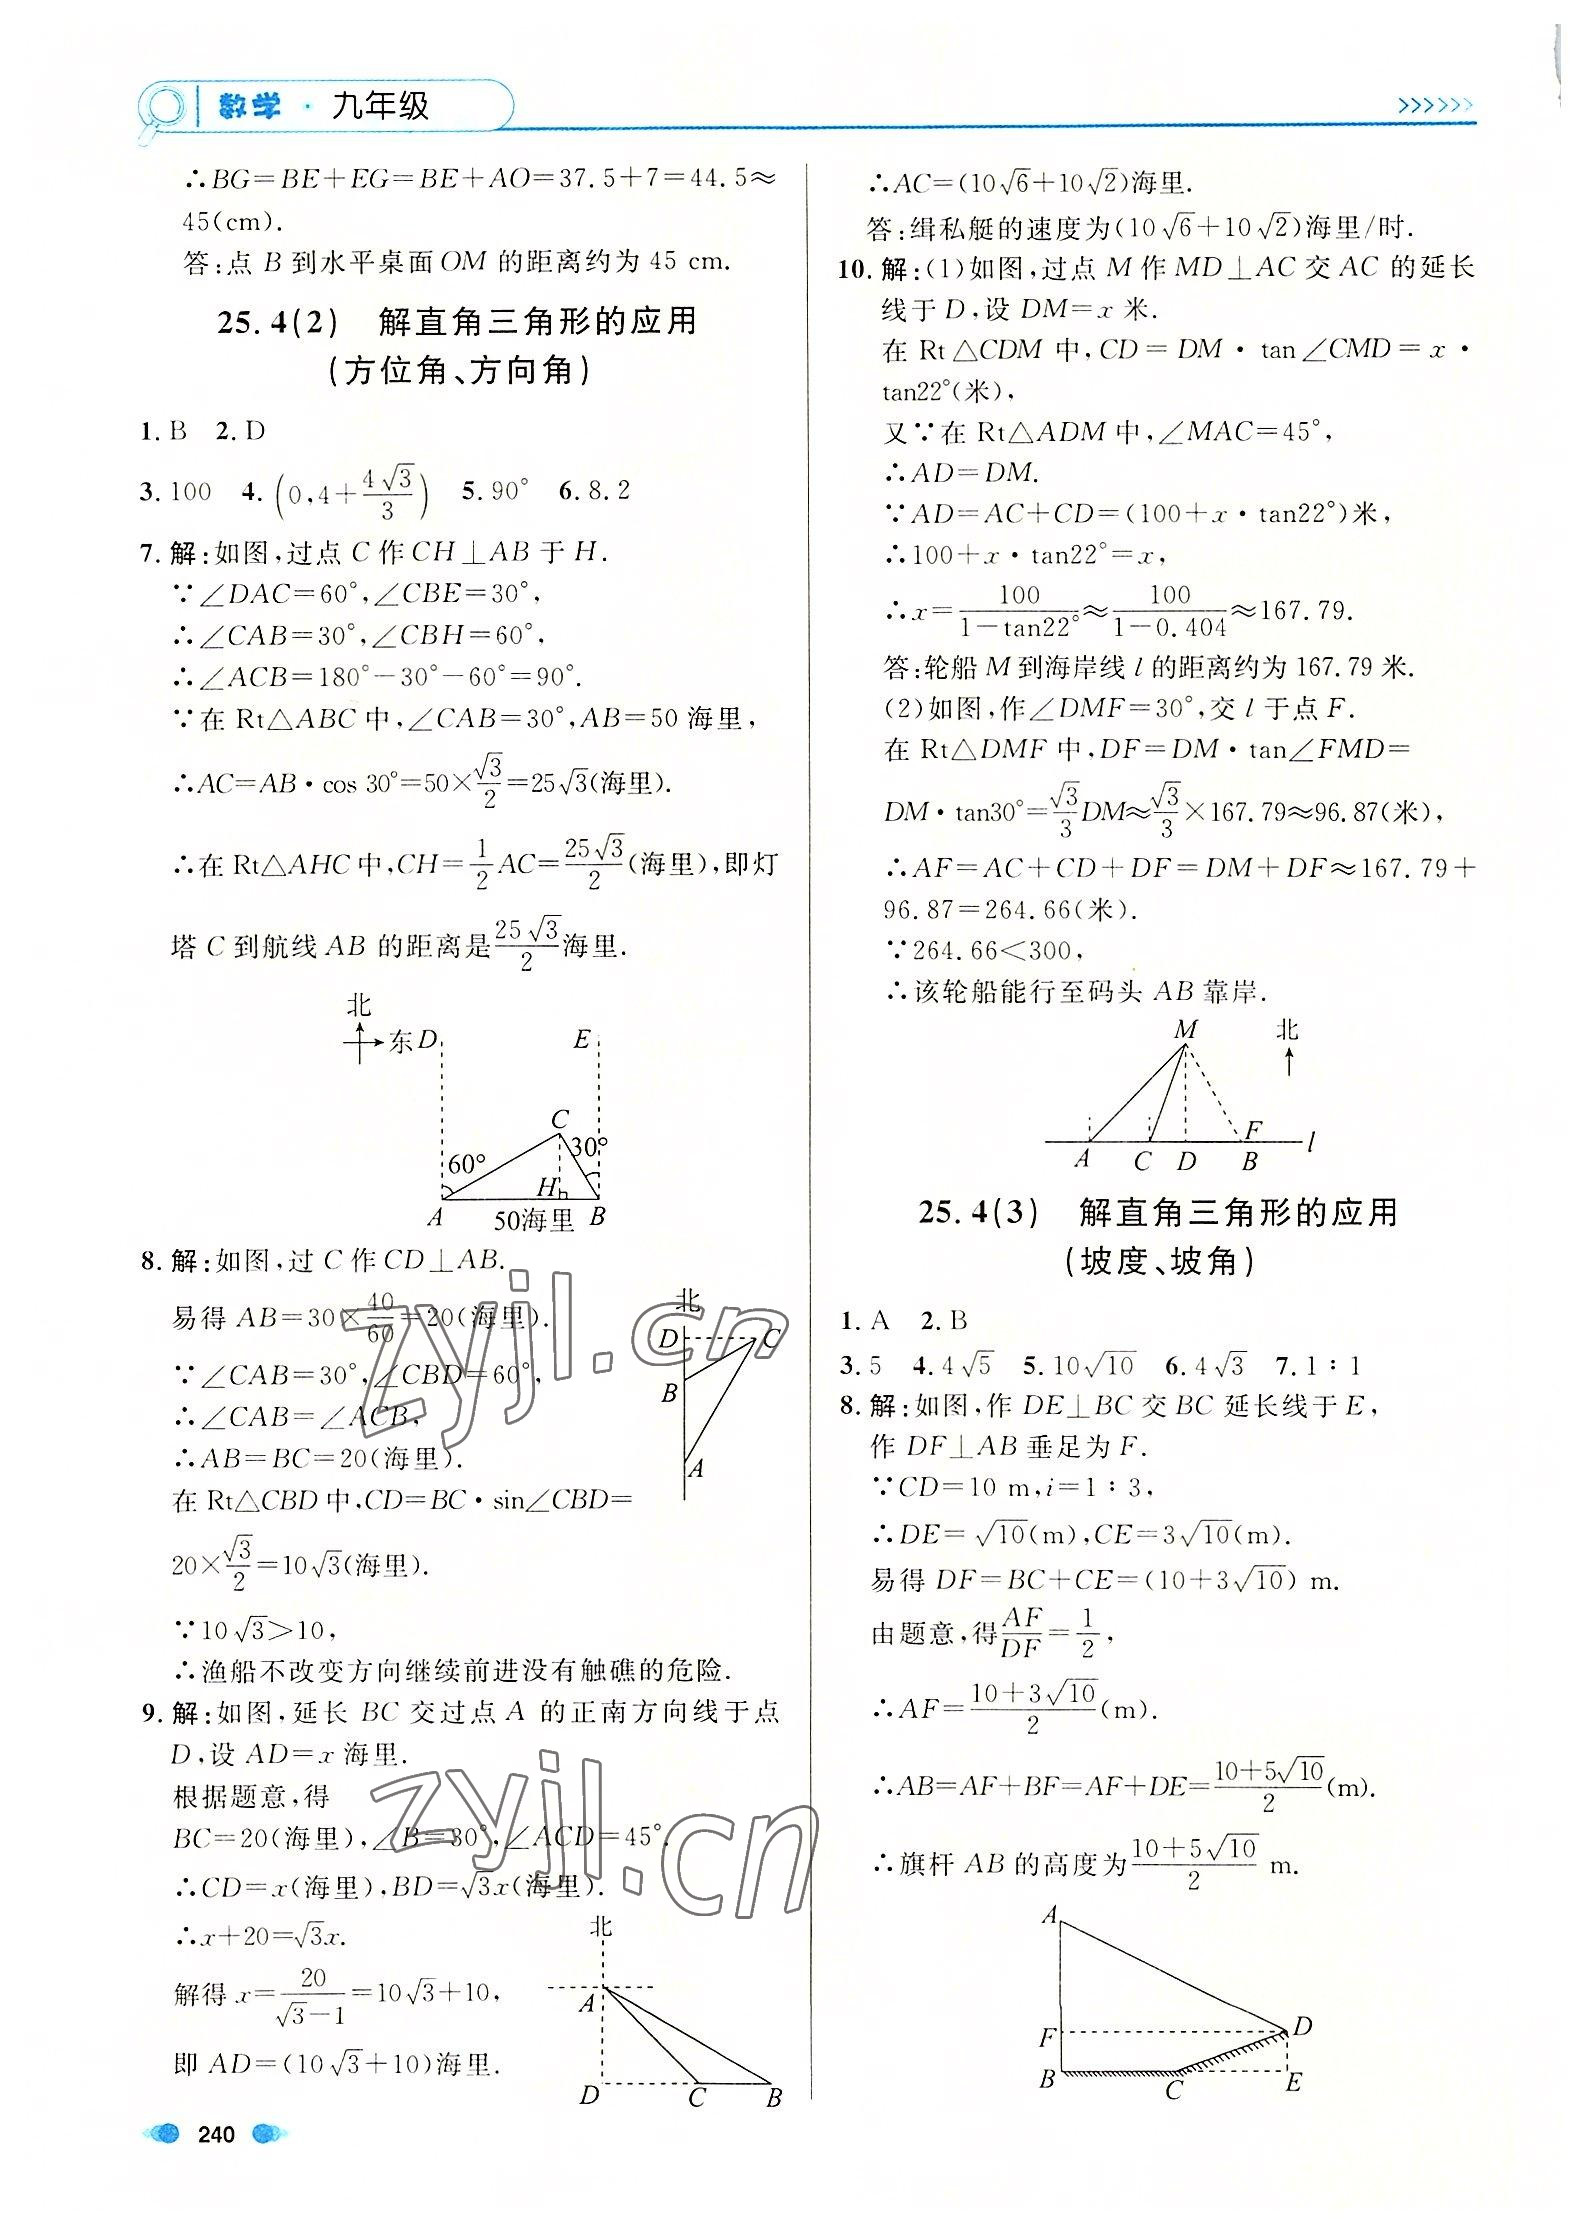 数学 · 九年级
∴BG=BE+EG=BE+AO=37.5+7=44.5≈
45(cm).
答:点 B 到水平桌面 OM 的距离约为 45 cm.
25.4(2) 解直角三角形的应用
(方位角、方向角)
1. B 2. D
3. 100 4. (0,4+4√3/3) 5. 90° 6. 8.2
7. 解:如图,过点 C 作 CH⊥AB 于 H.
∵∠DAC=60°,∠CBE=30°,
∴∠CAB=30°,∠CBH=60°,
∴∠ACB=180°−30°−60°=90°.
∵在 Rt△ABC 中,∠CAB=30°,AB=50 海里,
∴AC=AB·cos 30°=50×√3/2=25√3(海里).
∴在 Rt△AHC 中,CH=1/2 AC=25√3/2(海里),即灯
塔 C 到航线 AB 的距离是25√3/2海里.
北
东 D E
C
60° 30°
H
A 50海里 B
8. 解:如图,过 C 作 CD⊥AB.
易得 AB=30×40/60=20(海里).
∵∠CAB=30°,∠CBD=60°,
∴∠CAB=∠ACB,
∴AB=BC=20(海里).
在 Rt△CBD 中,CD=BC·sin∠CBD=
20×√3/2=10√3(海里).
∵10√3>10,
∴渔船不改变方向继续前进没有触礁的危险.
北
D C
B
A
9. 解:如图,延长 BC 交过点 A 的正南方向线于点
D,设 AD=x 海里.
根据题意,得
BC=20(海里),∠B=30°,∠ACD=45°.
∴CD=x(海里),BD=√3x(海里).
∴x+20=√3x.
解得 x=20/(√3−1)=10√3+10,
即 AD=(10√3+10)海里.
北
A
D C B
zyjl.cn
zyjl.cn
240
∴AC=(10√6+10√2)海里.
答:缉私艇的速度为(10√6+10√2)海里/时.
10. 解:(1)如图,过点 M 作 MD⊥AC 交 AC 的延长
线于 D,设 DM=x 米.
在 Rt△CDM 中,CD=DM·tan∠CMD=x·
tan22°(米),
又∵在 Rt△ADM 中,∠MAC=45°,
∴AD=DM.
∵AD=AC+CD=(100+x·tan22°)米,
∴100+x·tan22°=x,
∴x=100/(1−tan22°)≈100/(1−0.404)≈167.79.
答:轮船 M 到海岸线 l 的距离约为 167.79 米.
(2)如图,作∠DMF=30°,交 l 于点 F.
在 Rt△DMF 中,DF=DM·tan∠FMD=
DM·tan30°=√3/3DM≈√3/3×167.79≈96.87(米),
∴AF=AC+CD+DF=DM+DF≈167.79+
96.87=264.66(米).
∵264.66<300,
∴该轮船能行至码头 AB 靠岸.
M 北
F l
A C D B
25.4(3) 解直角三角形的应用
(坡度、坡角)
1. A 2. B
3. 5 4. 4√5 5. 10√10 6. 4√3 7. 1∶1
8. 解:如图,作 DE⊥BC 交 BC 延长线于 E,
作 DF⊥AB 垂足为 F.
∵CD=10 m,i=1∶3,
∴DE=√10(m),CE=3√10(m).
易得 DF=BC+CE=(10+3√10) m.
由题意,得AF/DF=1/2,
∴AF=(10+3√10)/2(m).
∴AB=AF+BF=AF+DE=(10+5√10)/2(m).
∴旗杆 AB 的高度为(10+5√10)/2 m.
A
F D
B C E